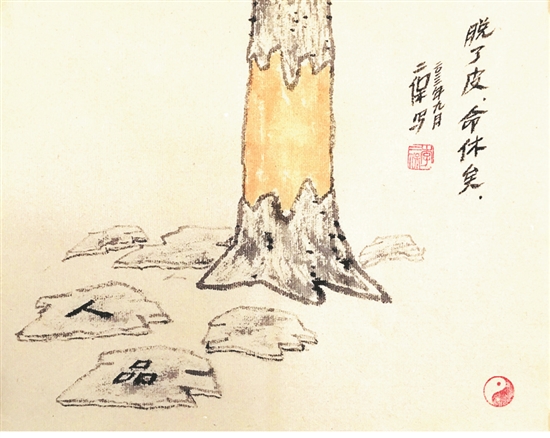 脱了�.命休矣.
二〇一三年九月
二保写
人
品